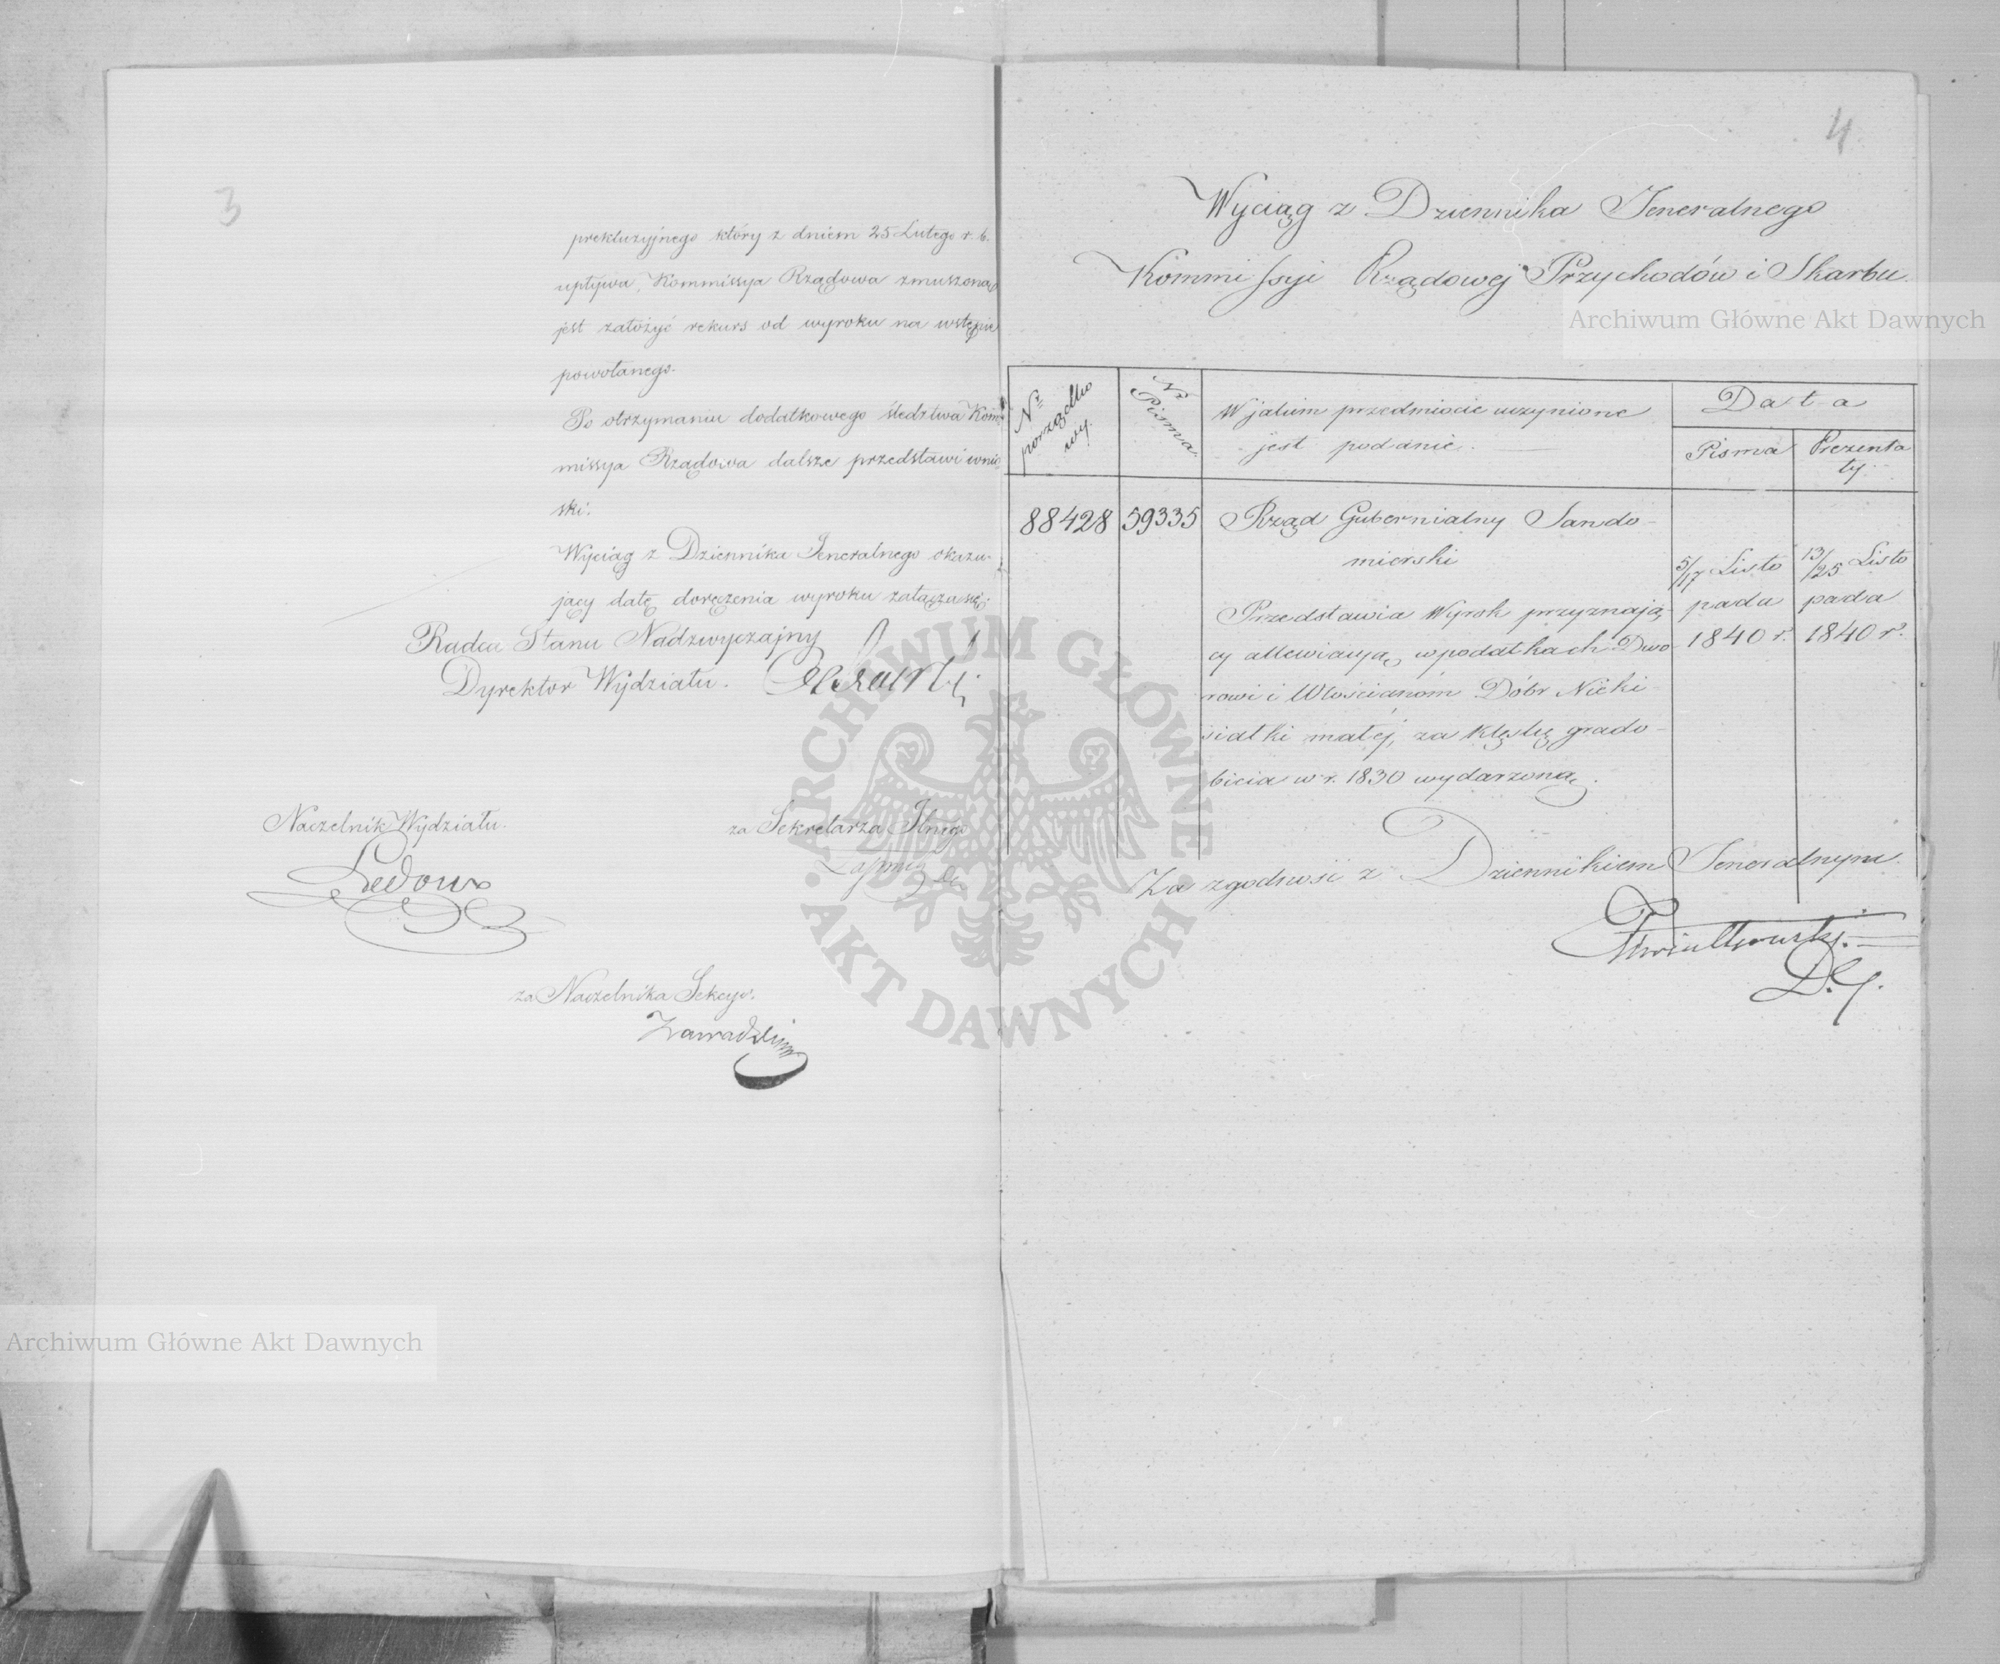 3
prekluzyjnego który z dniem 25 Lutego r. b.
upływa, Kommissya Rządowa zmuszoną
jest założyć rekurs od wyroku na wstępie
powołanego.
Po otrzymaniu dodatkowego śledztwa Kom-
missya Rządowa dalsze przedstawi wnio
ski.
Wyciąg z Dziennika Jeneralnego okazu-
jący datę doręczenia wyroku załącza się.
Radca Stanu Nadzwyczajny
Dyrektor Wydziału.
Naczelnik Wydziału.
Ledoux
za Sekretarza Jlnego
za Naczelnika Sekcyi.
4
Wyciąg z Dziennika Jeneralnego
Kommissyi Rządowej Przychodów i Skarbu.
Nr porządko
wy.
Nr
Pisma.
W jakim przedmiocie uczynione
jest podanie.
Data
Pisma
Prezenta
ty.
88428
59335
Rząd Gubernialny Sando-
mierski
Przedstawia Wyrok przyznają-
cy allewiacyą w podatkach Dwo-
rowi i Włościanom Dóbr Nieki-
siałki małej, za klęskę grado-
bicia w r. 1830 wydarzoną.
5/17 Listo
pada
1840 r.
13/25 Listo
pada
1840 r.
Za zgodność z Dziennikiem Jeneralnym
D. J.
Archiwum Główne Akt Dawnych
Archiwum Główne Akt Dawnych
ARCHIWUM GŁÓWNE
AKT DAWNYCH